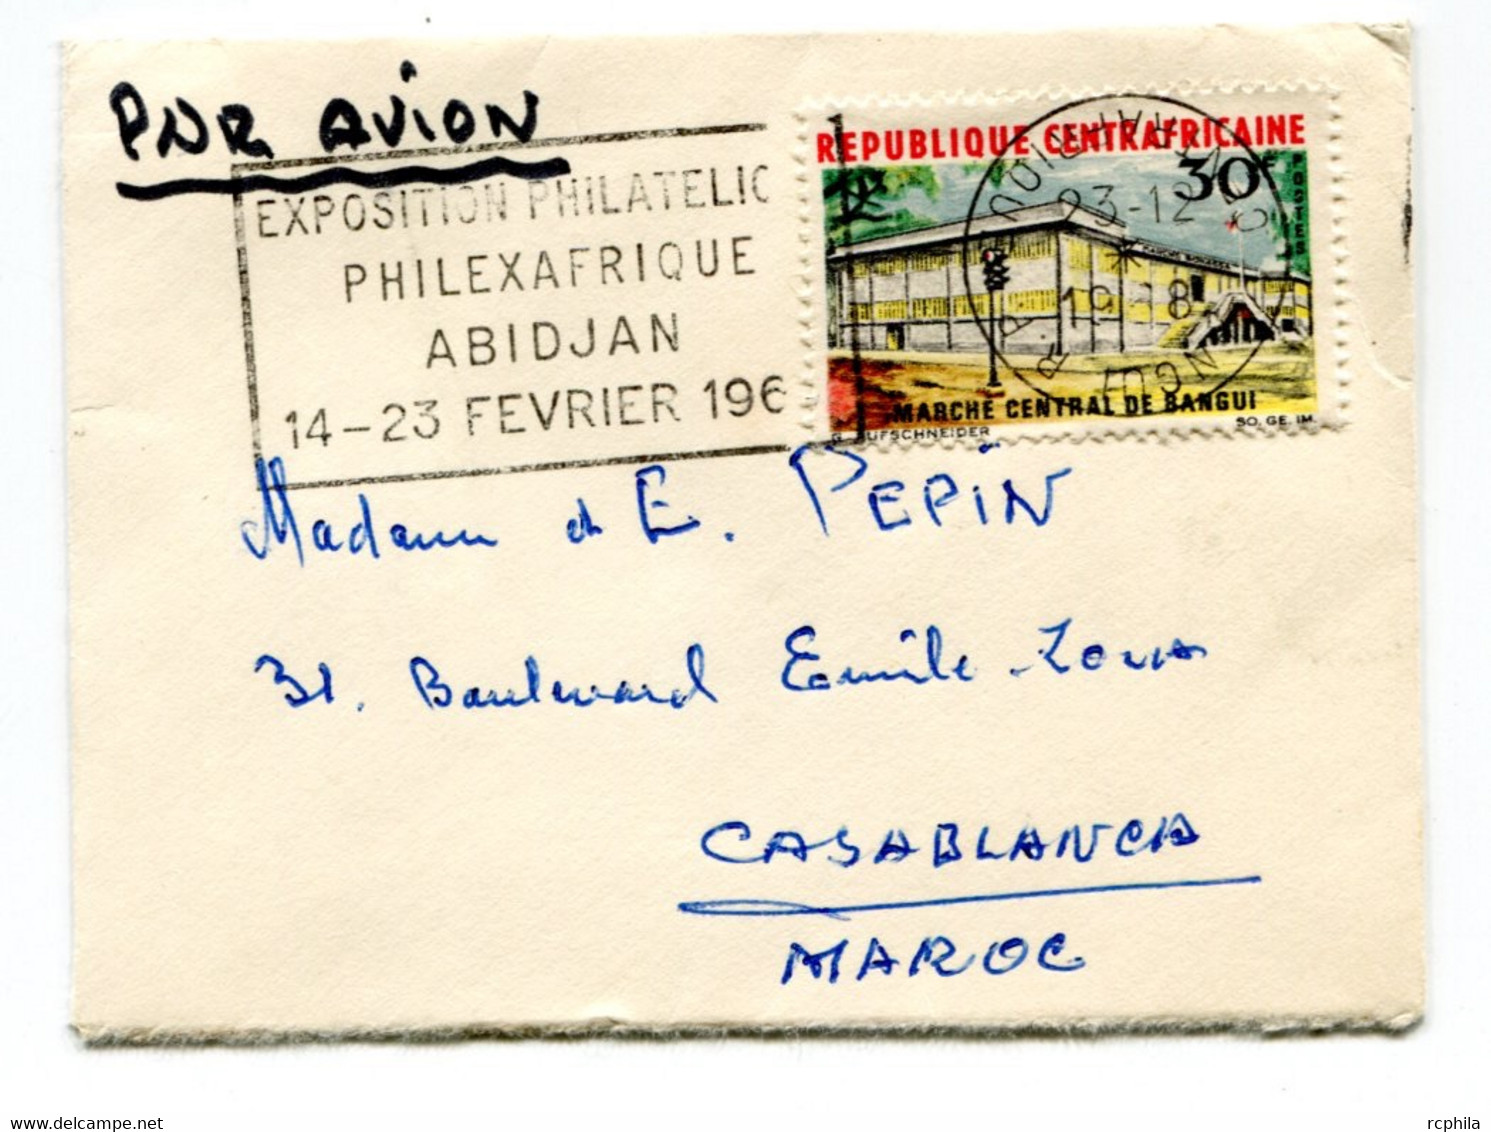 PAR AVION
EXPOSITION PHILATELIC
PHILEXAFRIQUE
ABIDJAN
14-23 FEVRIER 196
REPUBLIQUE CENTRAFRICAINE
30F
POSTES
23-12
*
19 8
BANGUI
MARCHE CENTRAL DE BANGUI
G. AUFSCHNEIDER
SO. GE. IM.
Madame E. PEPIN
31. Boulevard Emile Zola
CASABLANCA
MAROC
rcphila